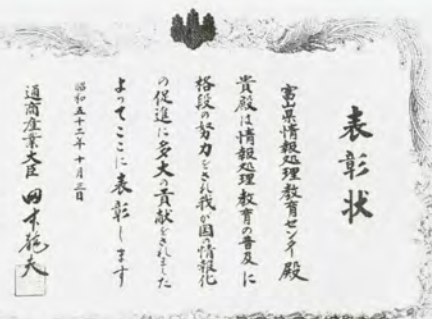 表彰状
富山県情報処理教育センター殿
貴殿は情報処理教育の普及に
格段の努力をされ我が国の情報化
の促進に多大の貢献をされました
よってここに表彰します
昭和五十二年十月三日
通商産業大臣 田中龍夫